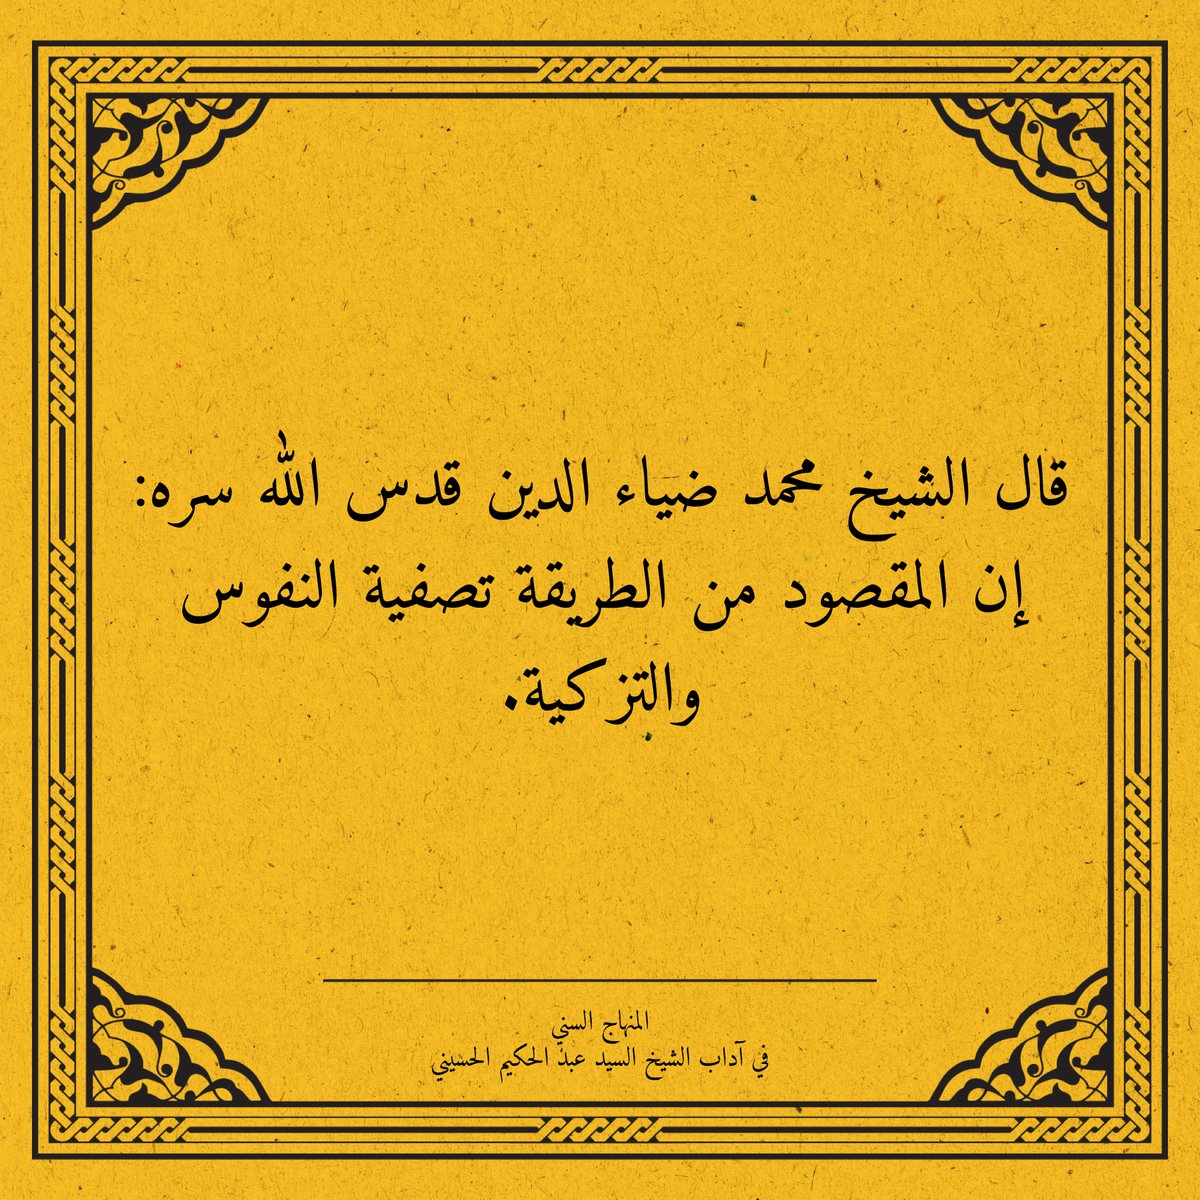 قال الشيخ محمد ضياء الدين قدس الله سره:
إن المقصود من الطريقة تصفية النفوس
والتزكية.
المنهاج السني
في آداب الشيخ السيد عبد الحكيم الحسيني